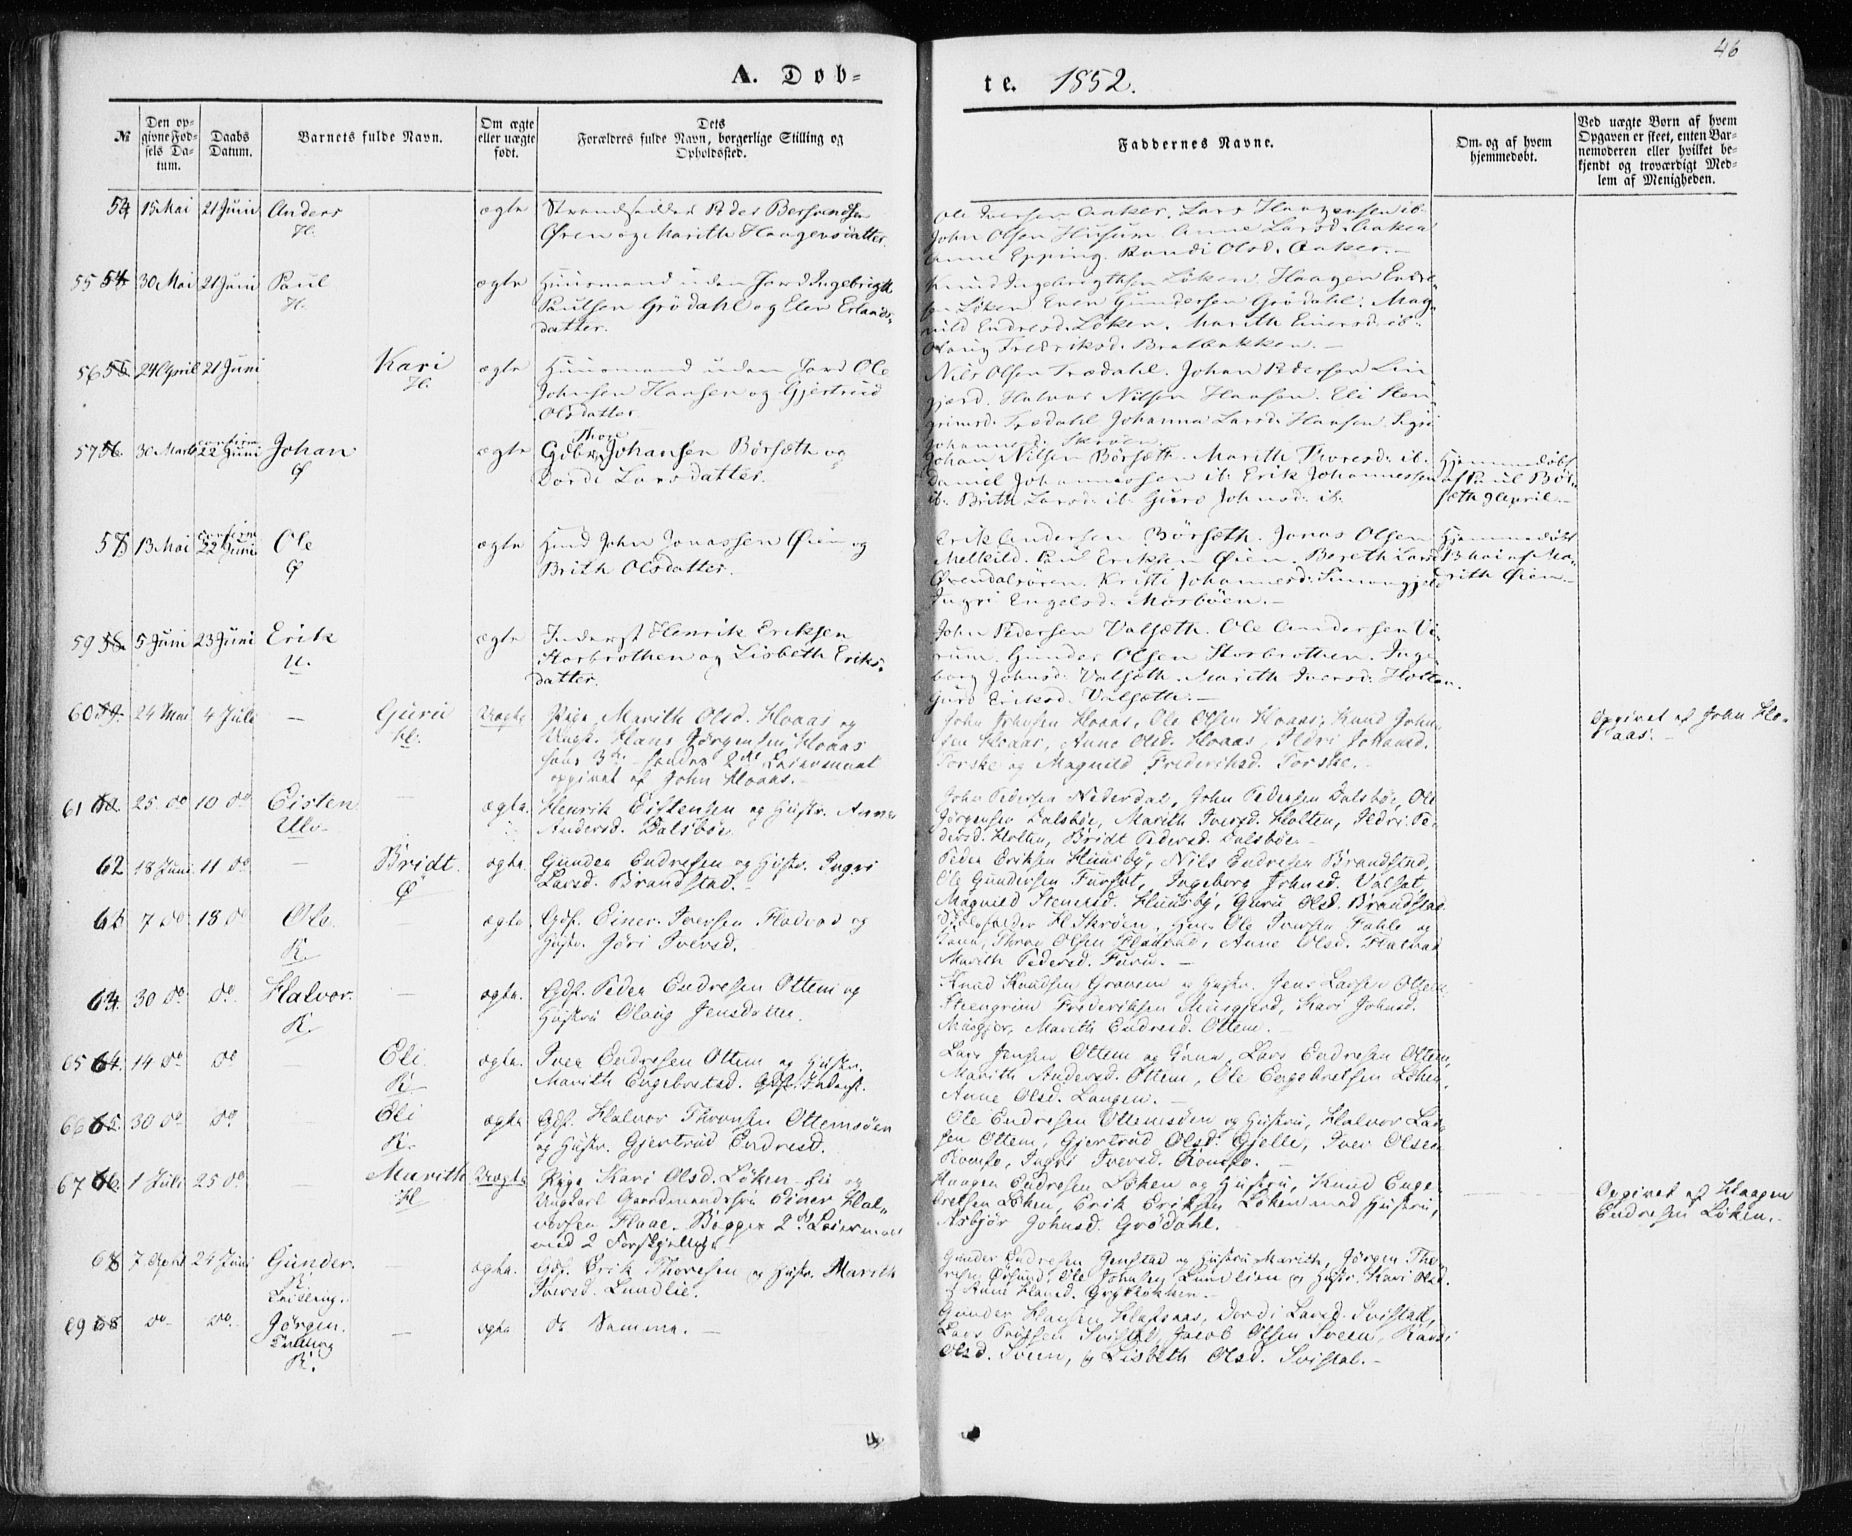 46
A. Døb-
te. 1852.
№
Den op-
givne Fød-
sels Da-
tum.
Daabs
Datum.
Barnets fulde Navn.
Om ægte
eller uægte
født.
Dets
Forældres fulde Navn, borgerlige Stilling og
Opholdssted.
Faddernes Navne.
Om- og af hvem
hjemmedøbt.
Ved uægte Børn af hvem
Opgaven er skeet, enten Bar-
nemoderen eller hvilket be-
kjendt og troværdigt Med-
lem af Menigheden.
54 15 Mai 21 Juni Anders ægte
H.
Øren og Marith Haagensdatter.
Ole Iversen Aaker. Lars Haagensen ib.
John Olsen Husum Anne Larsd. Aaker
Anne Epping. Randi Olsd. Aaker.
55 54 30 Mai 21 Juni Paul ægte Huusmand uden Jord Ingebrigt
H.
Paulsen Grödahl og Elen Erlands-
datter.
Knud Ingebrigtsen Löken. Haagen Endre-
sen Löken Even Gundersen Grödahl. Mag-
nild Endresd. Löken. Marith Einersd. ib.
Olaug Fredriksd. Bratbakken.
56 55 24 April 21 Juni Kari ægte Huusmand uden Jord Ole
H.
Johnsen Hansen og Gjertrud
Olsdatter
Nils Olsen Trædahl. Johan Pedersen Lin-
gjerd. Halvor Nilsen Hansen. Eli Sten-
grimsd. Trædahl Johanna Larsd. Hansen. Sigri
Johannesd. Skröen.
57 56 30 Marts confirm 22 Juni Johan ægte Gbr. Thore Johansen Börsæth og
Ø
Dordi Larsdatter.
Johan Nilsen Börsæth. Marith Thoresd. ib.
Daniel Johannessen ib. Erik Johannessen
ib. Brith Larsd. ib. Guro Johnsd. ib.
Hjemmedöbt
af Paul Bör-
sæth 9 April.
58 13 Mai confirm 22 Juni Ole ægte Huusd John Jonassen Øien og
Ø
Brith Olsdatter.
Erik Andersen Börsæth. Jonas Olsen
Melkild. Paul Eriksen Øien. Bereth Larsd
Øxendalsören. Kristi Johannesd.
Ingri Engelsd. Mosböen.
Hjemmedöbt
13 Mai af Ma-
rith Øien
59 58. 5 Juni 23 Juni Erik ægte Inderst Henrik Eriksen
U.
Storbrothen og Lisbeth Eriks-
datter.
John Pedersen Valsæth. Ole Andersen Vi-
rum. Gunder Olsen Storbrothen. Inge-
borg Johnsd. Valsæth. Marith Iversd. Holten.
Guro Eriksd. Valsæth.
60 59. 24 Mai 4 Juli — Guru Uægte Pige Marith Olsd. Hoaas og
H.
Ungk. Hans Jörgensen Hoaas
hans 3die hendes 2det Leiermaal
opgivet af John Hoaas.
John Johnsen Hoaas, Ole Olsen Hoaas, Knud John-
sen Hoaas, Anne Olsd. Hoaas, Ildri Johansd.
Torske og Magnild Frederiksd. Torske.
Opgivet af John Ho-
aas.
61 60. 25 do 10 do Eisten — ægte. Henrik Eistensen og Hustr. Anne
Ulv.
Andersd. Dalsböe
John Pedersen Nederdal, John Pedersen Dalsböe, Ole
Jörgensen Dalsböe, Marith Iversd. Holten, Ildri Pe-
dersd. Holten, Bridt Pedersd. Dalsböe.
62 18 Juni 11 do — Bridt. ægte. Gunder Endresen og Hustr. Ingri
Ø
Larsd. Brandstad.
Peder Eriksen Huusby, Nils Endresen Brandstad,
Ole Gundersen Furset, Ingeborg Johnsd. Valset,
Magnild Stenersd. Huusby, Guru Olsd. Brandstad
7 do 18 do Ole — ægte. Gdf. Einer Iversen Fladvad og
K.
Hustr. Jöri Iversd.
H. Skröen, Ole Iversen Fahle og
Kona, Thrond Olsen Fladvad, Anne Olsd. Fladvad
Marith Pedersd. Furu.
64. 30 do do. Halvor. — ægte. Gdf. Peder Endresen Ottem og
K.
Hustru Olaug Jensdatter.
Knud Knudsen Gravem og Hustr. Jens Larsen Ottem
Steengrim Frederiksen Musgjerd, Kari Johnsd.
Musgjer, Marith Endresd. Ottem.
65 64. 14 do do — Eli ægte. Iver Endresen Ottem og Hustr.
K
Marith Engebretsd. Gdf. Inderst.
Lars Jensen Ottem og Kona, Lars Endresen Ottem,
Marith Andersd. Ottem, Ole Engebretsen Löken,
Anne Olsd. Langen.
66 65. 30 do do. Eli ægte Gdf. Halvor Thronsen Ottemsöen
K.
og Hustr. Gjertrud Endresd.
Ole Endresen Ottemsöen og Hustru, Halvor Lar-
sen Ottem, Gjertrud Olsd. Gjelle, Iver Olsen
Romfo, Ingri Iversd. Romfo.
67 66. 1 Juli 25 do — Marith Uægte Pige Kari Olsd. Löken og
H
Ungkarl Gaardmandssön Einer Hal-
vorsen Hoae. Begges 2det Leiermaal
med 2 Forskjellige.
Haagen Endresen Löken og Hustru, Knud Enge-
bretsen Löken, Erik Eriksen Löken med Hustru,
Asbjör Johnsd. Grödahl.
Opgivet af Haagen
Endresen Löken.
68 24 Juni Gunder. — ægte. Gdf. Erik Thoresen og Hustr. Marith
K.
Tvilling.
Iversd. Lundlie.
Gunder Endresen Jenstad og Hustru Marith, Jörgen Tho-
resen, Ole Johnsen Lundlien og Hustr. Kari Olsd.
69 68 do do. Jörgen. — ægte do Samme. —
Tvilling
K.
Gunder Hansen Hafsaas, Dordi Larsd. Svisdal,
Lars Svisdal, Jacob Olsen Sveen, Kari
Olsd. Sveen, og Lisbeth Olsd. Svisdal.